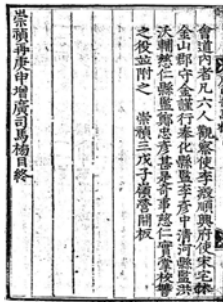 會道內者凡六人觀察使李淑順興府使宋宅
金山郡守金謹行奉化縣監李彥中清河縣監洪
沃輔慈仁縣監鄭忠彥甚是奇事慈仁實當校讐
之役並附之　崇禎三戊子嶺營開板
崇禎再庚申增廣司馬榜目終